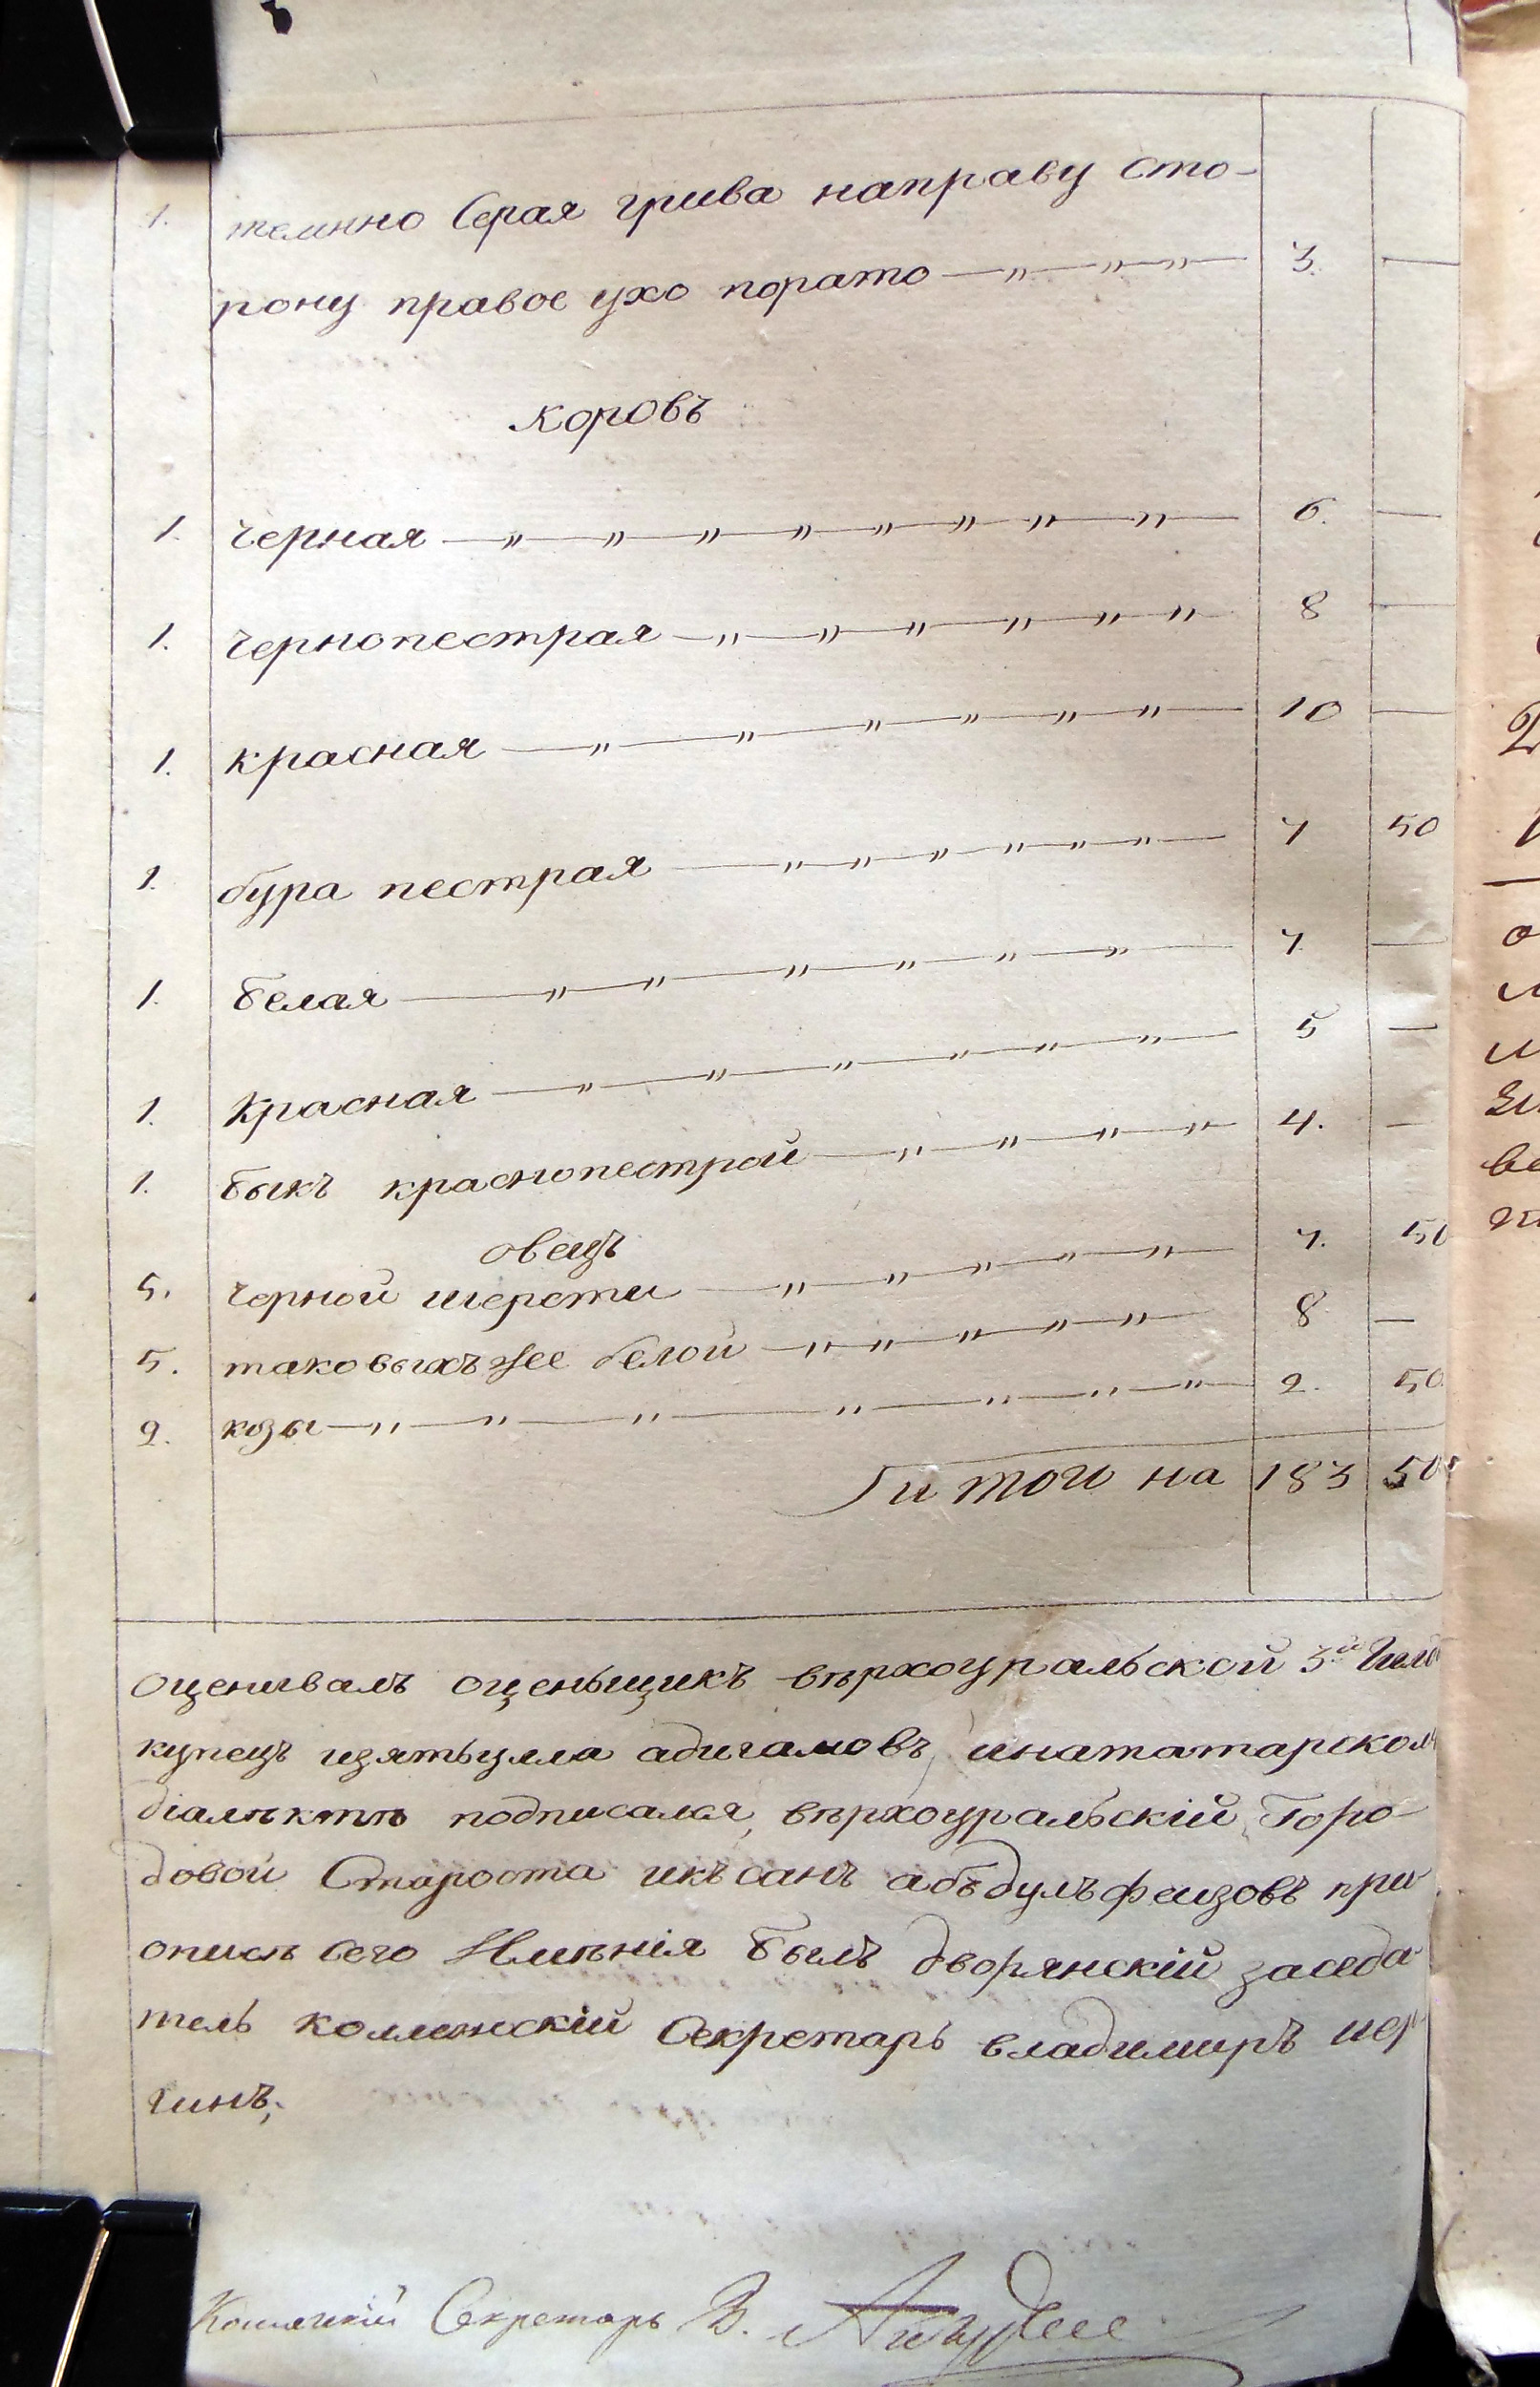 1. темнно Серая грива направу сто-
рону правое ухо порато —„—„—„— 3. —
коровъ
1. черная —„—„—„—„—„—„—„— 6. —
1. чернопестрая —„—„—„—„—„—„ 8 —
1. красная —„—„—„—„—„—„— 10 —
1. бура пестрая —„—„—„—„—„—„— 7 50
1. белая —„—„—„—„—„—„— 7. —
1. Красная —„—„—„—„—„—„— 5 —
1. быкъ краснопестрой —„—„—„—„— 4. —
овецъ
5. черной шерсти —„—„—„—„—„— 7. 50
5. таковыхъ же белой —„—„—„—„—„— 8 —
2. козы —„—„—„—„—„—„—„— 2. 50
итои на 183 50
оценивалъ оценьщикъ вѣрхоуральской 3й Гил
купецъ изятьулла адигамовъ, инататарском
діалѣктѣ подписался, вѣрхоуральскій Горо-
довой Староста икъсанъ абъдулъфеизовъ при
описѣ сего Имѣнія былъ дворянскій заседа-
тель коллежскій Секретарь владимиръ
гинъ,
Секретарь В.